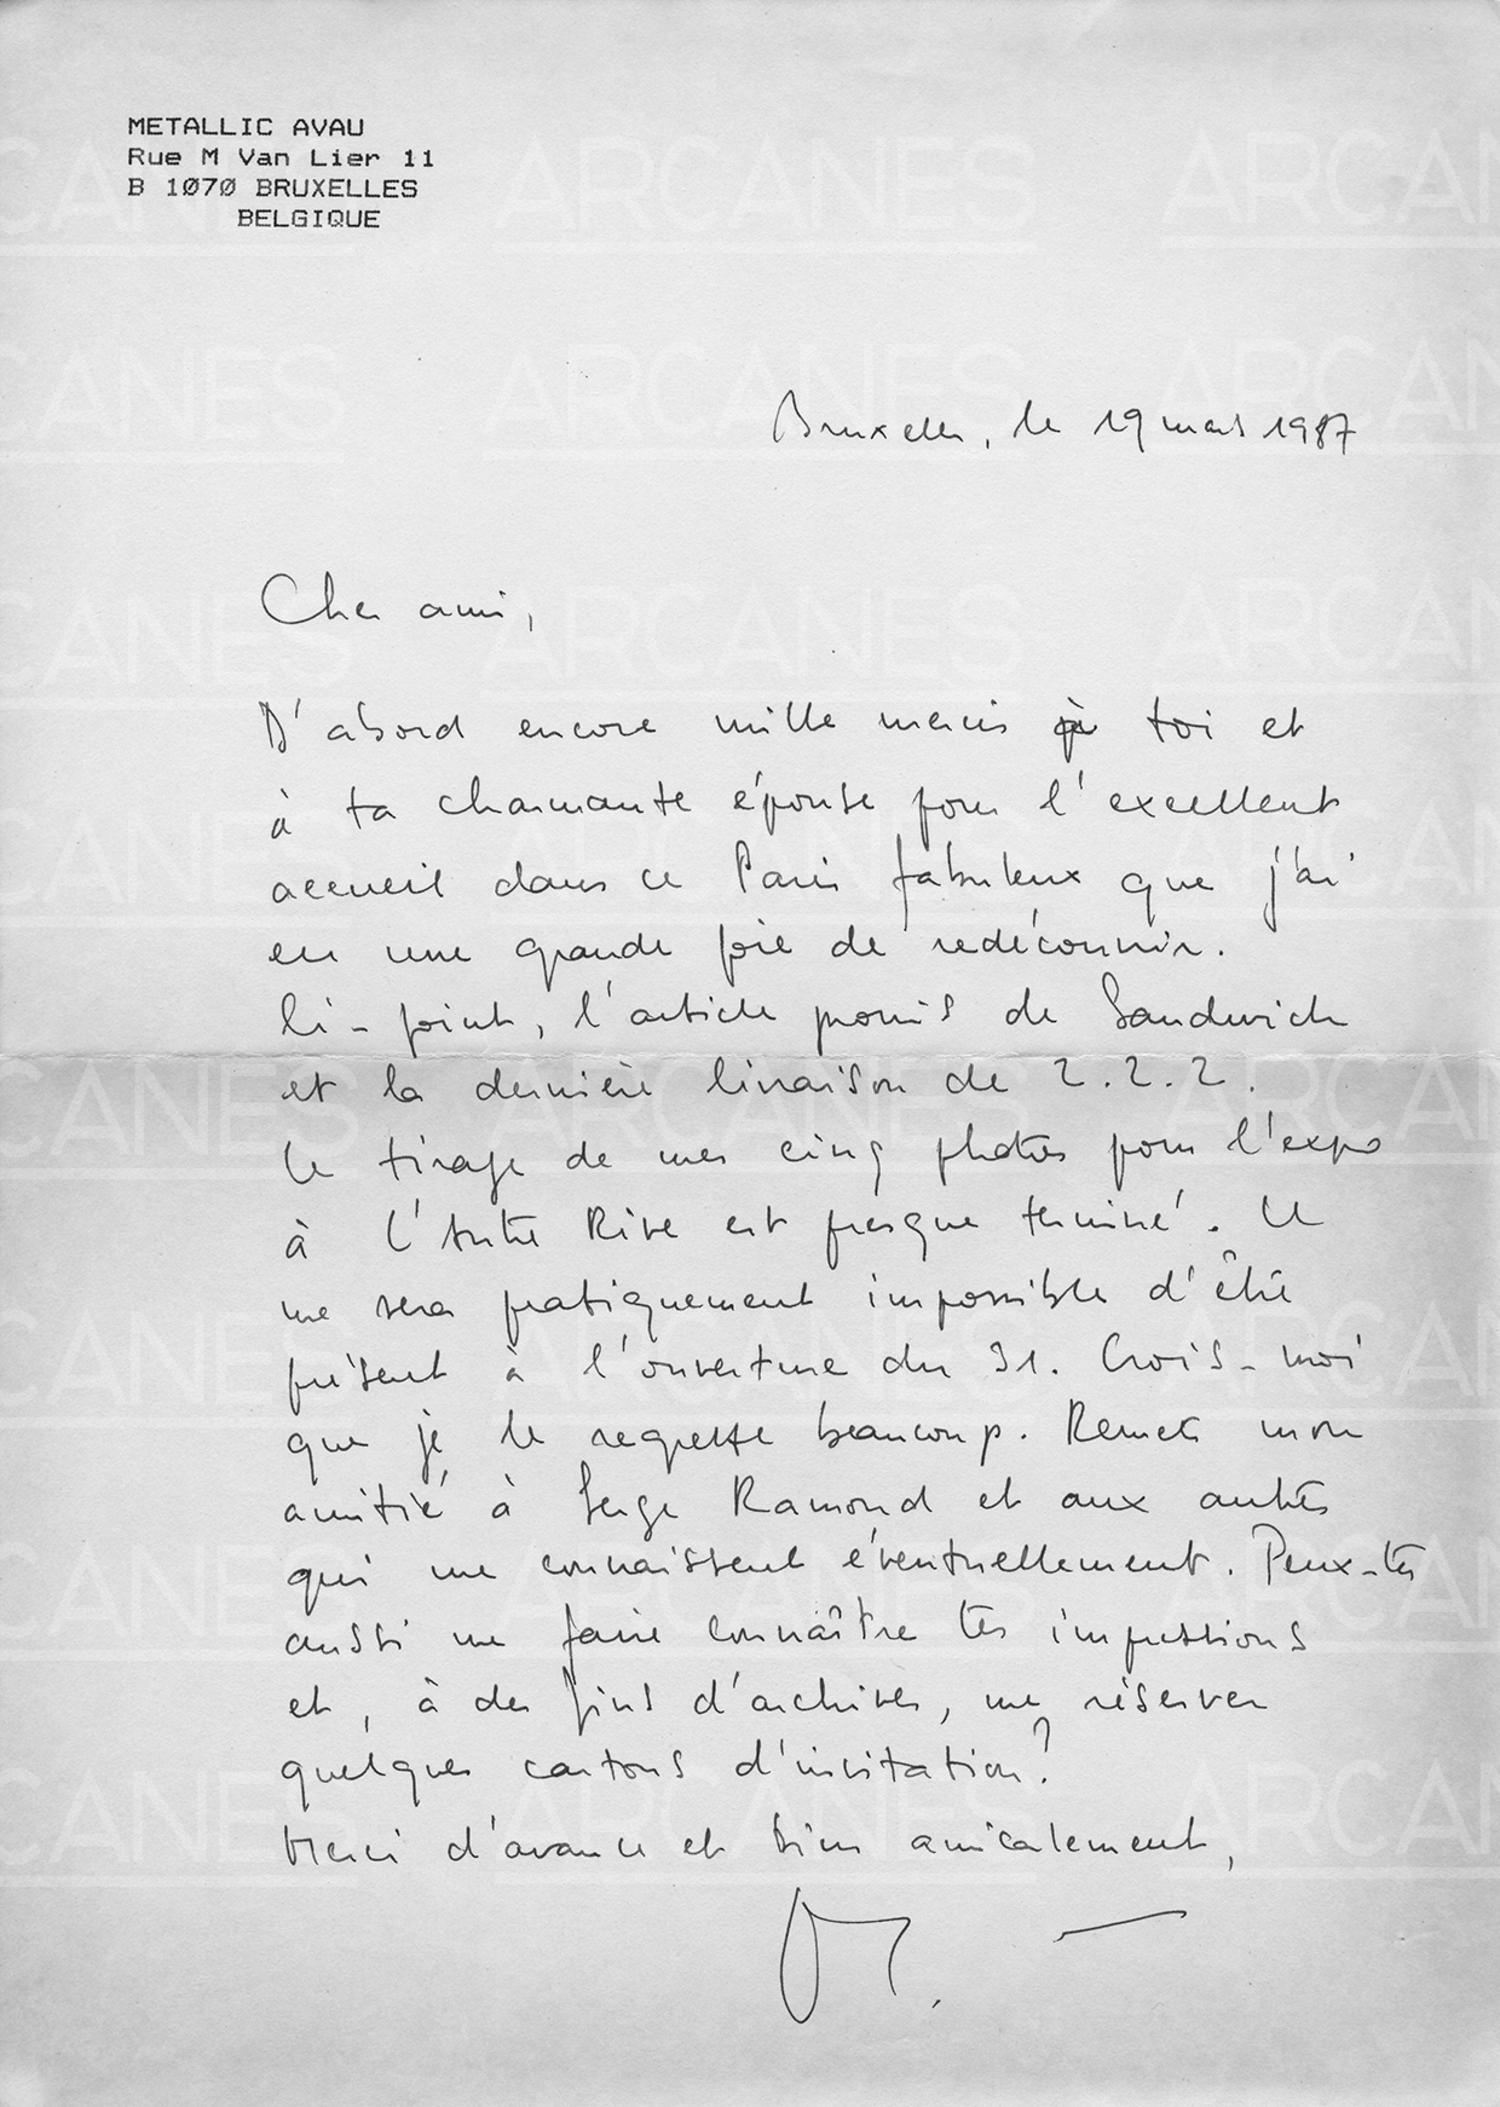 METALLIC AVAU
Rue M Van Lier 11
B 1070 BRUXELLES
BELGIQUE
Bruxelles, le 19 mars 1987
Cher ami,
D'abord encore mille mercis à toi et
à ta charmante épouse pour l'excellent
accueil dans ce Paris fabuleux que j'ai
eu une grande joie de redécouvrir.
Ci-joint, l'article promis de Sandwich
et la dernière livraison de 2.2.2.
Le tirage de mes cinq photos pour l'expo
à l'Autre Rive est presque terminé. Il
me sera pratiquement impossible d'être
présent à l'ouverture du 31. Crois-moi
que je le regrette beaucoup. Remets mon
amitié à Serge Ramond et aux autres
qui me connaissent éventuellement. Peux-tu
aussi me faire connaître tes impressions
et, à des fins d'archives, me réserver
quelques cartons d'invitation?
Merci d'avance et bien amicalement,
ARCANES